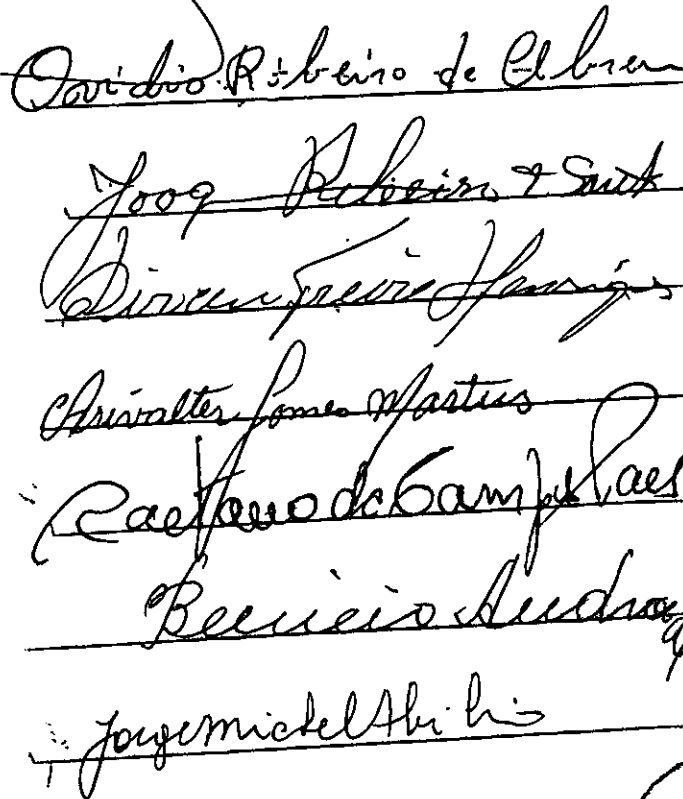 Ovidio Ribeiro de Abreu
João Ribeiro
Dirceu Freire Henriques
Arivalter Gomes Martins
Caetano de Campos Paes
Benicio Andra
Jorge Michel Abi